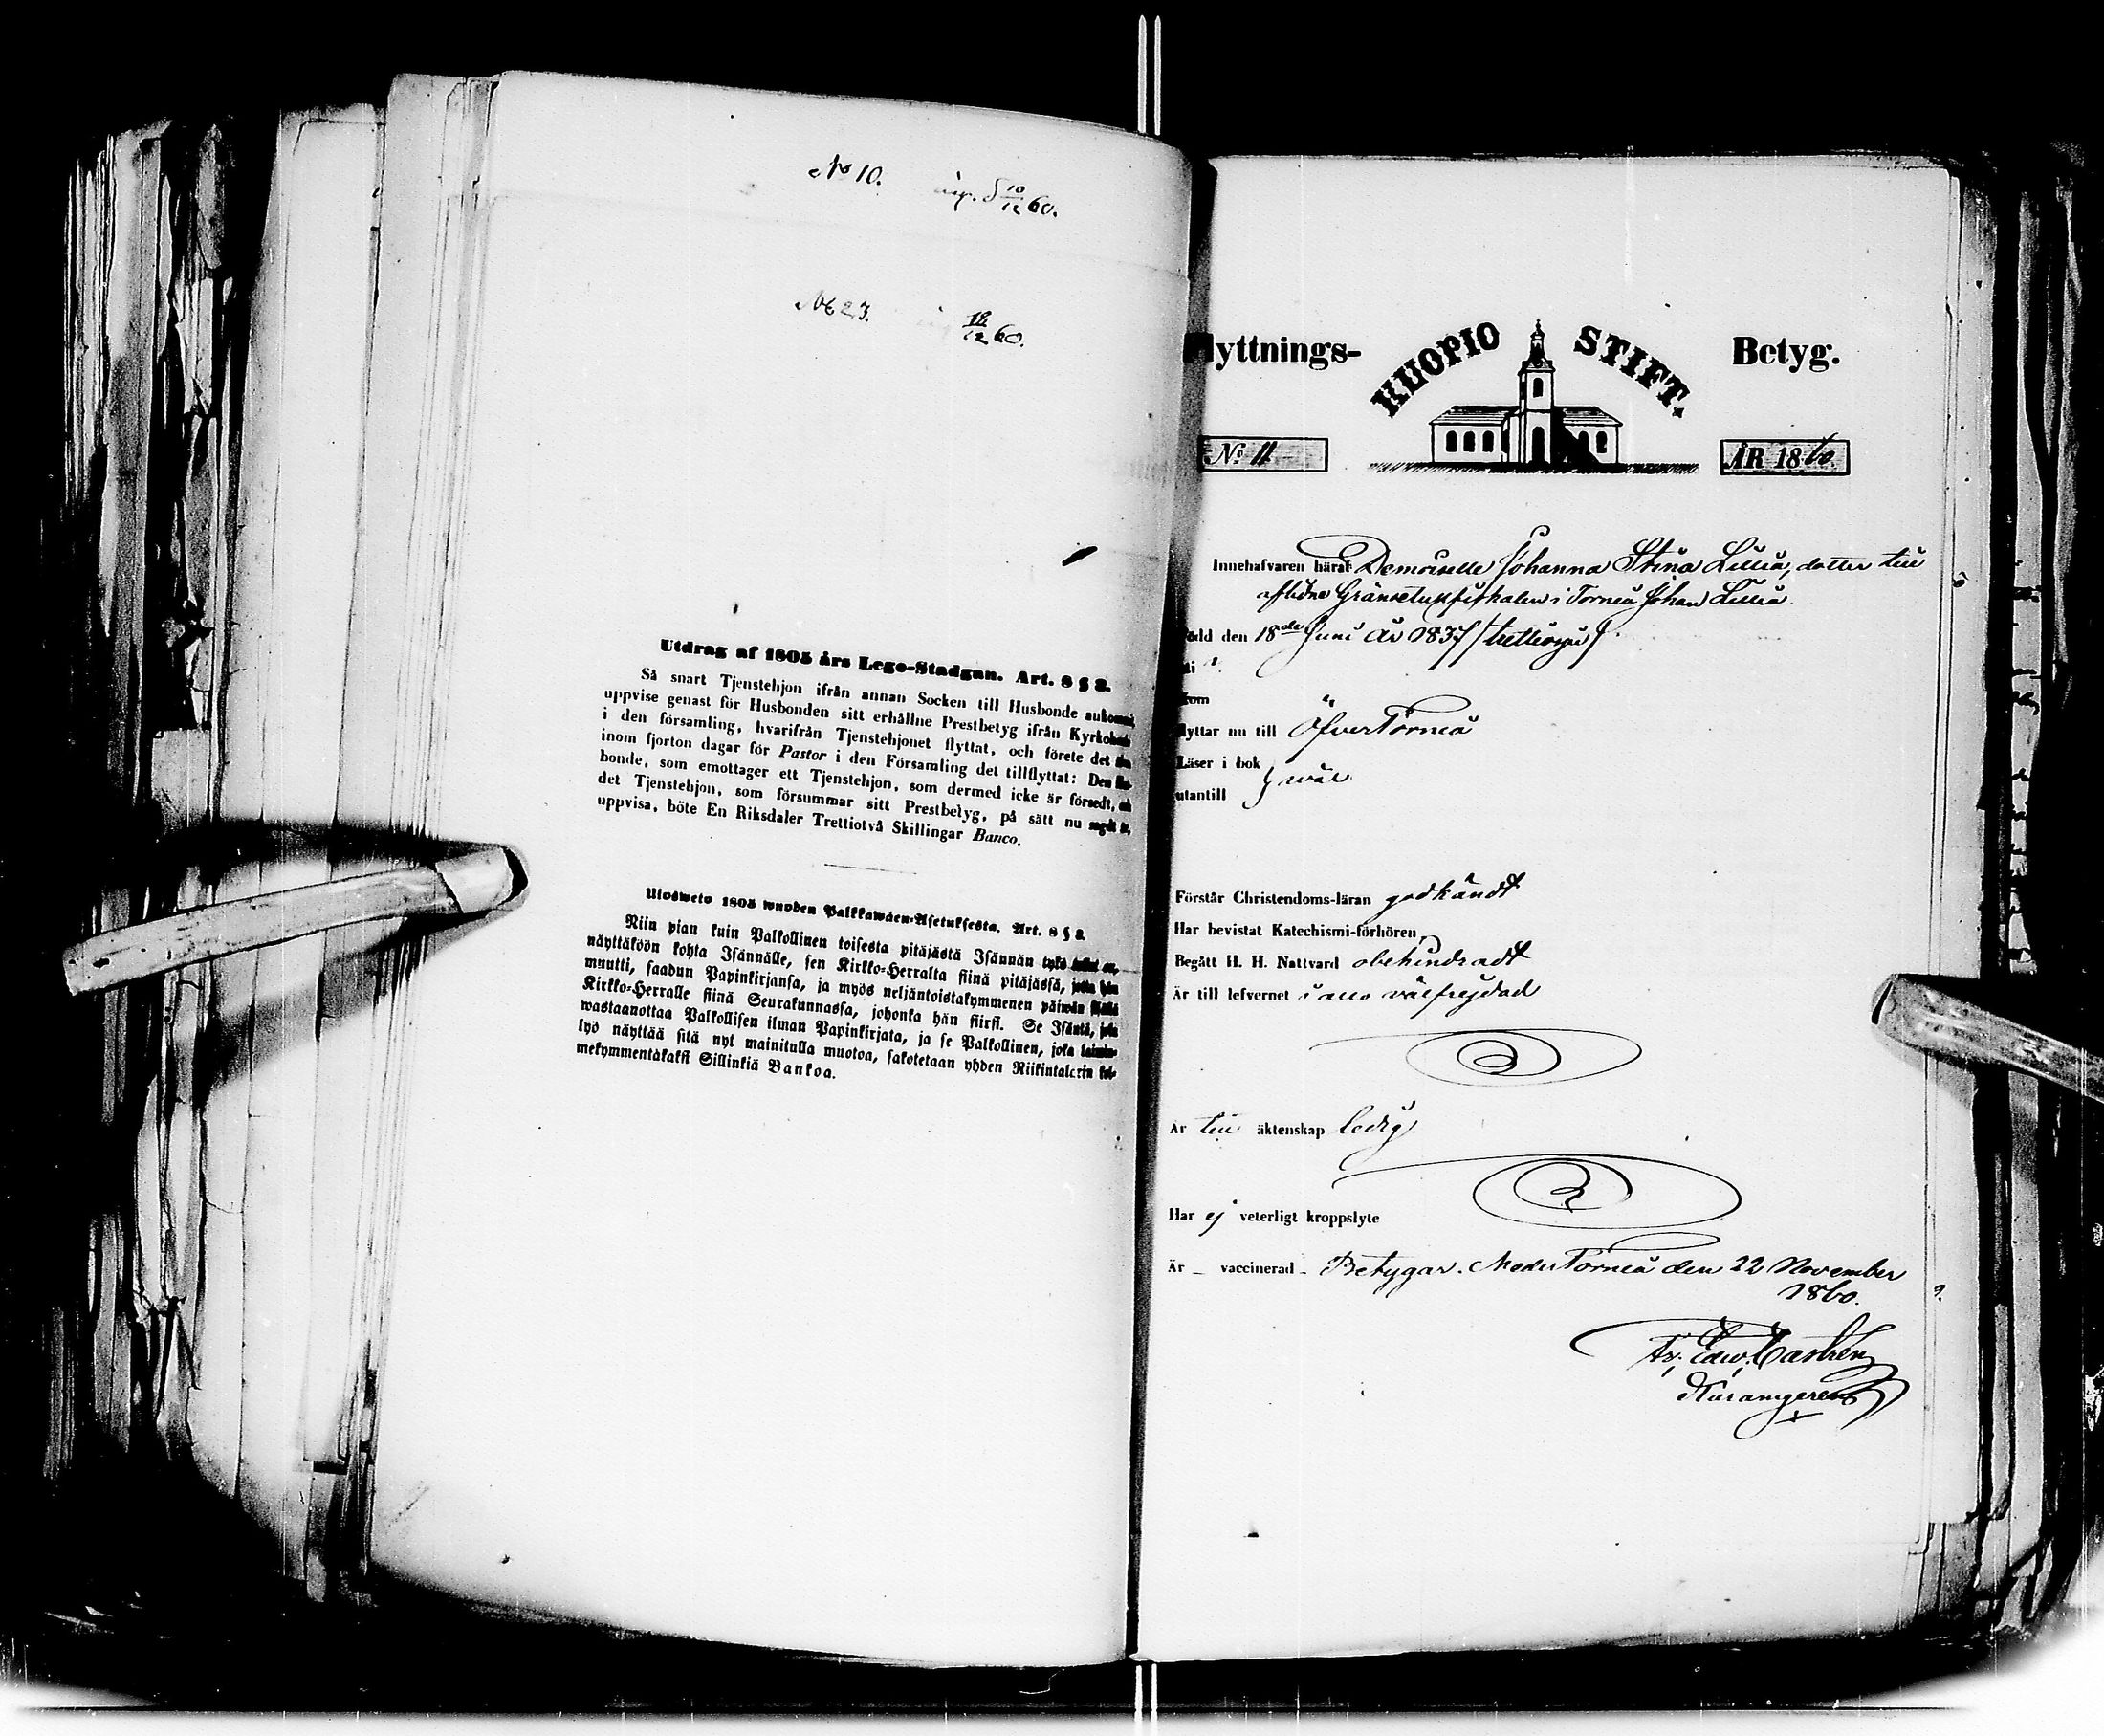 No 10. inf. 10/12 60.
No 23. 19/12 60.
Utdrag af 1805 års Lego-Stadgan. Art. 8 § 2.
Så snart Tjenstehjon ifrån annan Socken till Husbonde ankommit,
uppvise genast för Husbonden sitt erhållne Prestbetyg ifrån
i den församling, hvarifrån Tjenstehjonet flyttat, och förete det
inom fjorton dagar för Pastor i den Församling det tillflyttat: Den
bonde, som emottager ett Tjenstehjon, som dermed icke är försedt,
det Tjenstehjon, som försummar sitt Prestbetyg, på sätt nu sagdt är,
uppvisa, böte En Riksdaler Trettiotvå Skillingar Banco.
Ulosweto 1805 wuoden Palkkawäen-Asetuksesta. Art. 8 § 2.
Niin pian kuin Palkollinen toisesta pitäjästä Isännän tykö tullut on,
näyttäköön kohta Isännälle, sen Kirkko-Herralta siinä pitäjässä, josta hän
muutti, saadun Papinkirjansa, ja myös neljäntoistakymmenen päiwän
Kirkko-Herralle siinä Seurakunnassa, johonka hän siirsi. Se Isäntä, joka
wastaanottaa Palkollisen ilman Papinkirjata, ja se Palkollinen, joka laimin-
lyö näyttää sitä nyt mainitulla muotoa, sakotetaan yhden Riikintalerin kol-
mekymmentäkaksi Sillinkiä Bankoa.
Flyttnings- KUOPIO STIFT. Betyg.
No 11 ÅR 1860
Innehafvaren häraf Demoiselle Johanna Stina Lillia, dotter till
aflidne Gränsetullfiskalen i Torneå Johan Lillia.
född den 18de Juni år 1837 (trettiosju)
i
som
flyttar nu till ÖfverTorneå
Läser i bok } wäl
utantill
Förstår Christendoms-läran godkändt
Har bevistat Katechismi-förhören
Begått H. H. Nattvard obehindradt
Är till lefvernet i allo välfrejdad
Är till äktenskap ledig
Har ej veterligt kroppslyte
Är – vaccinerad – Betygar. NederTorneå den 22 November
1860.
Fr. Edw. Castrén